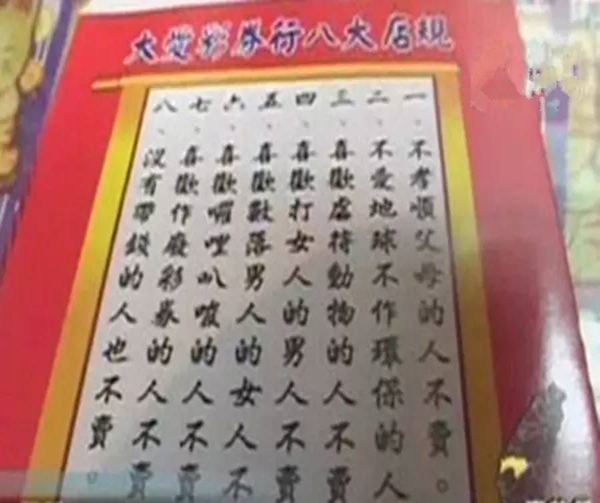 大愛彩券行八大店規
一、不孝順父母的人不賣。
二、不愛地球不作環保的人
三、喜歡虐待動物的人不賣
四、喜歡打女人的男人不賣
五、喜歡數落男人的女人不
六、喜歡囉哩叭唆的人不賣
七、喜歡作廢彩券的人不賣
八、沒有帶錢的人也不賣。